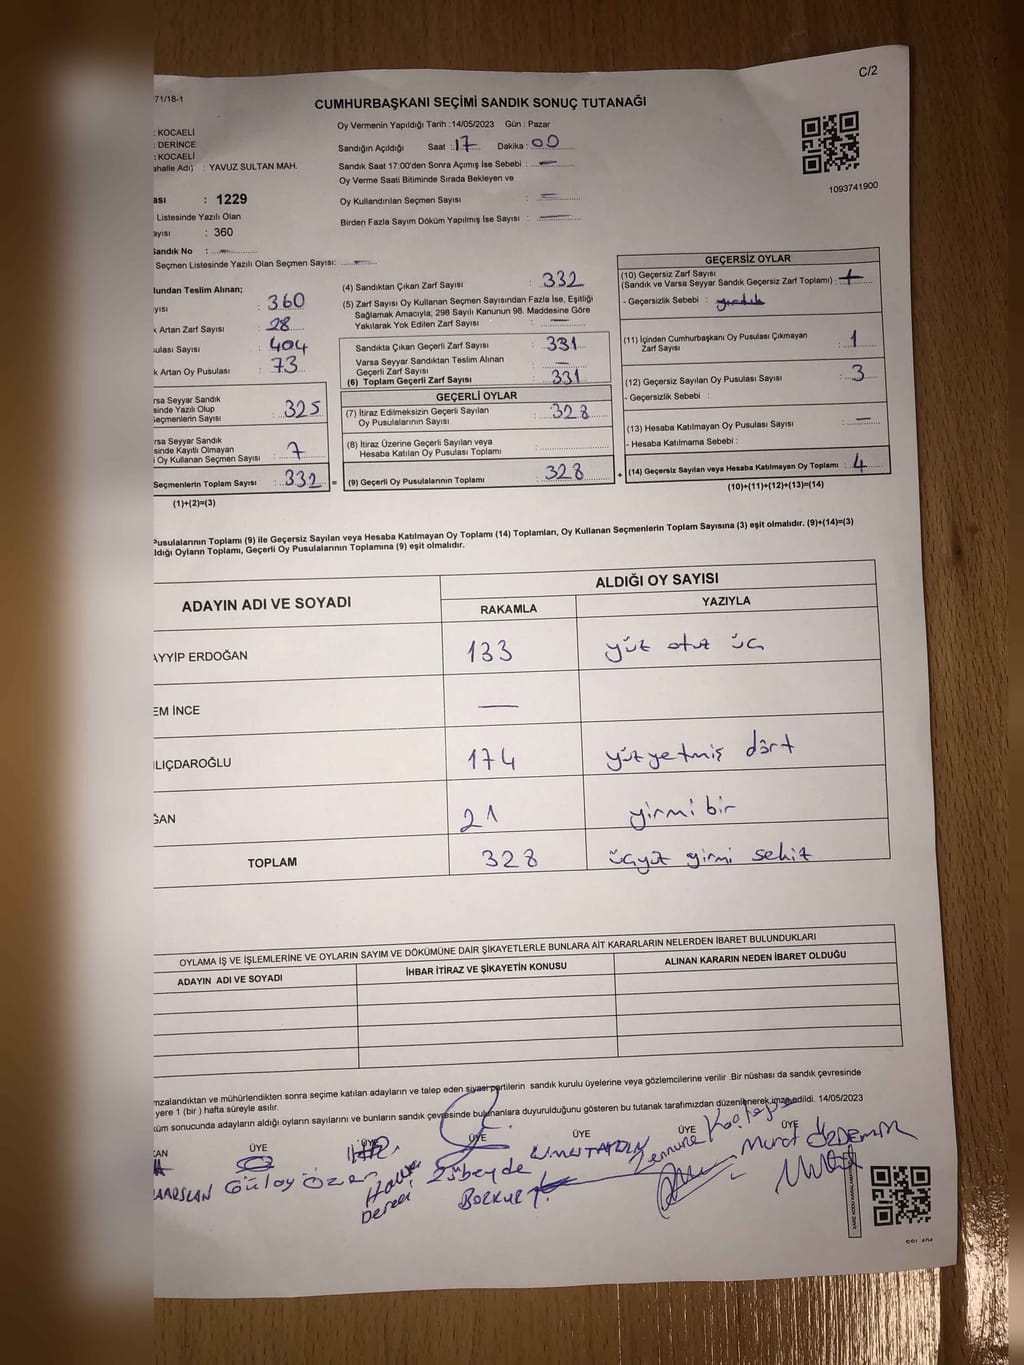 C/2
71/18-1
CUMHURBAŞKANI SEÇİMİ SANDIK SONUÇ TUTANAĞI
: KOCAELİ
: DERİNCE
: KOCAELİ
ahalle Adı) : YAVUZ SULTAN MAH.
Oy Vermenin Yapıldığı Tarih : 14/05/2023 Gün : Pazar
Sandığın Açıldığı Saat : 17 Dakika : 00
Sandık Saat 17:00'den Sonra Açımış İse Sebebi : —
Oy Verme Saati Bitiminde Sırada Bekleyen ve
Oy Kullandırılan Seçmen Sayısı : —
Birden Fazla Sayım Döküm Yapılmış İse Sayısı : —
1093741900
ası : 1229
Listesinde Yazılı Olan
ayısı : 360
Sandık No : —
Seçmen Listesinde Yazılı Olan Seçmen Sayısı: —
lundan Teslim Alınan;
yısı : 360
k Artan Zarf Sayısı : 28
ulası Sayısı : 404
k Artan Oy Pusulası : 73
rsa Seyyar Sandık
sinde Yazılı Olup
eçmenlerin Sayısı : 325
rsa Seyyar Sandık
sinde Kayıtlı Olmayan
Oy Kullanan Seçmen Sayısı : 7
Seçmenlerin Toplam Sayısı : 332
(1)+(2)=(3)
(4) Sandıktan Çıkan Zarf Sayısı : 332
(5) Zarf Sayısı Oy Kullanan Seçmen Sayısından Fazla İse, Eşitliği
Sağlamak Amacıyla; 298 Sayılı Kanunun 98. Maddesine Göre
Yakılarak Yok Edilen Zarf Sayısı : —
Sandıkta Çıkan Geçerli Zarf Sayısı : 331
Varsa Seyyar Sandıktan Teslim Alınan
Geçerli Zarf Sayısı : —
(6) Toplam Geçerli Zarf Sayısı : 331
GEÇERLİ OYLAR
(7) İtiraz Edilmeksizin Geçerli Sayılan
Oy Pusulalarının Sayısı : 328
(8) İtiraz Üzerine Geçerli Sayılan veya
Hesaba Katılan Oy Pusulası Toplamı :
= (9) Geçerli Oy Pusulalarının Toplamı : 328 +
GEÇERSİZ OYLAR
(10) Geçersiz Zarf Sayısı
(Sandık ve Varsa Seyyar Sandık Geçersiz Zarf Toplamı) :
- Geçersizlik Sebebi :
(11) İçinden Cumhurbaşkanı Oy Pusulası Çıkmayan
Zarf Sayısı : 1
(12) Geçersiz Sayılan Oy Pusulası Sayısı : 3
- Geçersizlik Sebebi :
(13) Hesaba Katılmayan Oy Pusulası Sayısı : —
- Hesaba Katılmama Sebebi :
(14) Geçersiz Sayılan veya Hesaba Katılmayan Oy Toplamı : 4
(10)+(11)+(12)+(13)=(14)
Pusulalarının Toplamı (9) ile Geçersiz Sayılan veya Hesaba Katılmayan Oy Toplamı (14) Toplamları, Oy Kullanan Seçmenlerin Toplam Sayısına (3) eşit olmalıdır. (9)+(14)=(3)
ldığı Oyların Toplamı, Geçerli Oy Pusulalarının Toplamına (9) eşit olmalıdır.
ADAYIN ADI VE SOYADI
ALDIĞI OY SAYISI
RAKAMLA YAZIYLA
AYYİP ERDOĞAN 133 yüz otuz üç
EM İNCE —
ILIÇDAROĞLU 174 yüzyetmiş dört
ĞAN 21 yirmi bir
TOPLAM 328 üçyüz yirmi sekiz
OYLAMA İŞ VE İŞLEMLERİNE VE OYLARIN SAYIM VE DÖKÜMÜNE DAİR ŞİKAYETLERLE BUNLARA AİT KARARLARIN NELERDEN İBARET BULUNDUKLARI
ADAYIN ADI VE SOYADI İHBAR İTİRAZ VE ŞİKAYETİN KONUSU ALINAN KARARIN NEDEN İBARET OLDUĞU
mzalandıktan ve mühürlendikten sonra seçime katılan adayların ve talep eden siyasi partilerin sandık kurulu üyelerine veya gözlemcilerine verilir .Bir nüshası da sandık çevresinde
yere 1 (bir ) hafta süreyle asılır.
küm sonucunda adayların aldığı oyların sayılarını ve bunların sandık çevresinde bulunanlara duyurulduğunu gösteren bu tutanak tarafımızdan düzenlenerek imza edildi. 14/05/2023
KAN ÜYE ÜYE ÜYE ÜYE ÜYE ÜYE
Gülay Özer
Zübeyde
Bozkurt
Koçtepe
Murat ÖZDEMİR